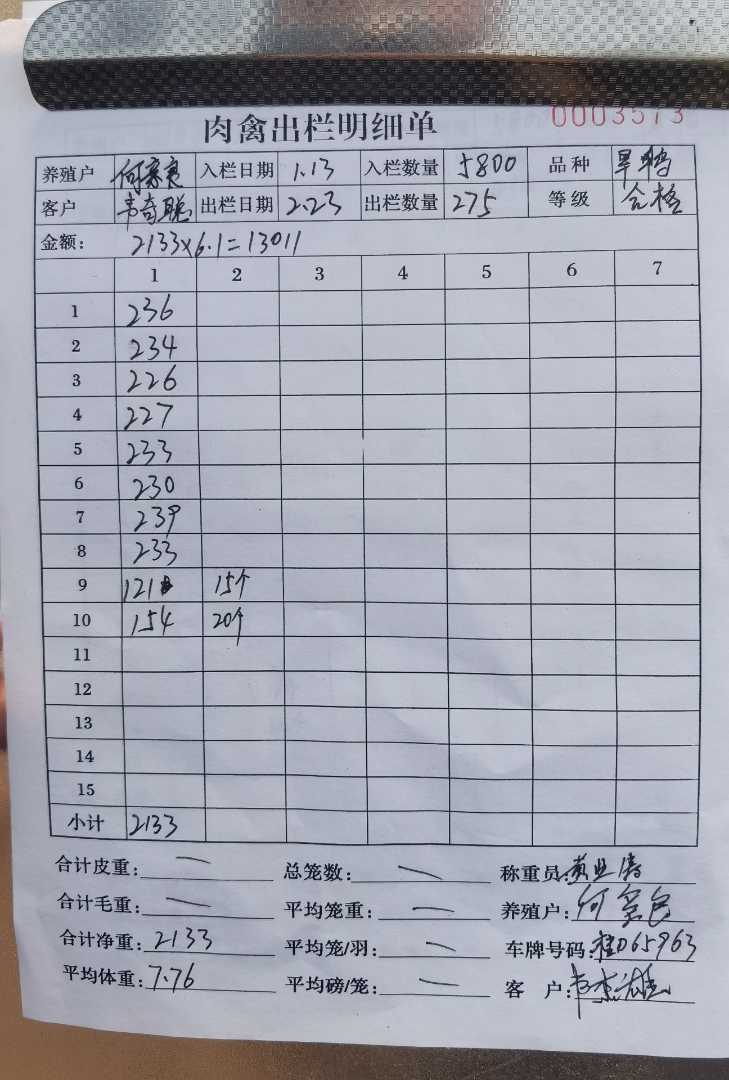 0003573
肉禽出栏明细单
养殖户 入栏日期 1.13 入栏数量 5800 品种 旱鸭
客户 韦奇聪 出栏日期 2.23 出栏数量 275 等级 合格
金额: 2133×6.1=13011
1 2 3 4 5 6 7
1 236
2 234
3 226
4 227
5 233
6 230
7 239
8 233
9 121 15个
10 154 20个
11
12
13
14
15
小计 2133
合计皮重: 一 总笼数: 一 称重员
合计毛重: 一 平均笼重: 一 养殖户:
合计净重: 2133 平均笼/羽: 一 车牌号码: 桂D65963
平均体重: 7.76 平均磅/笼: 一 客 户: